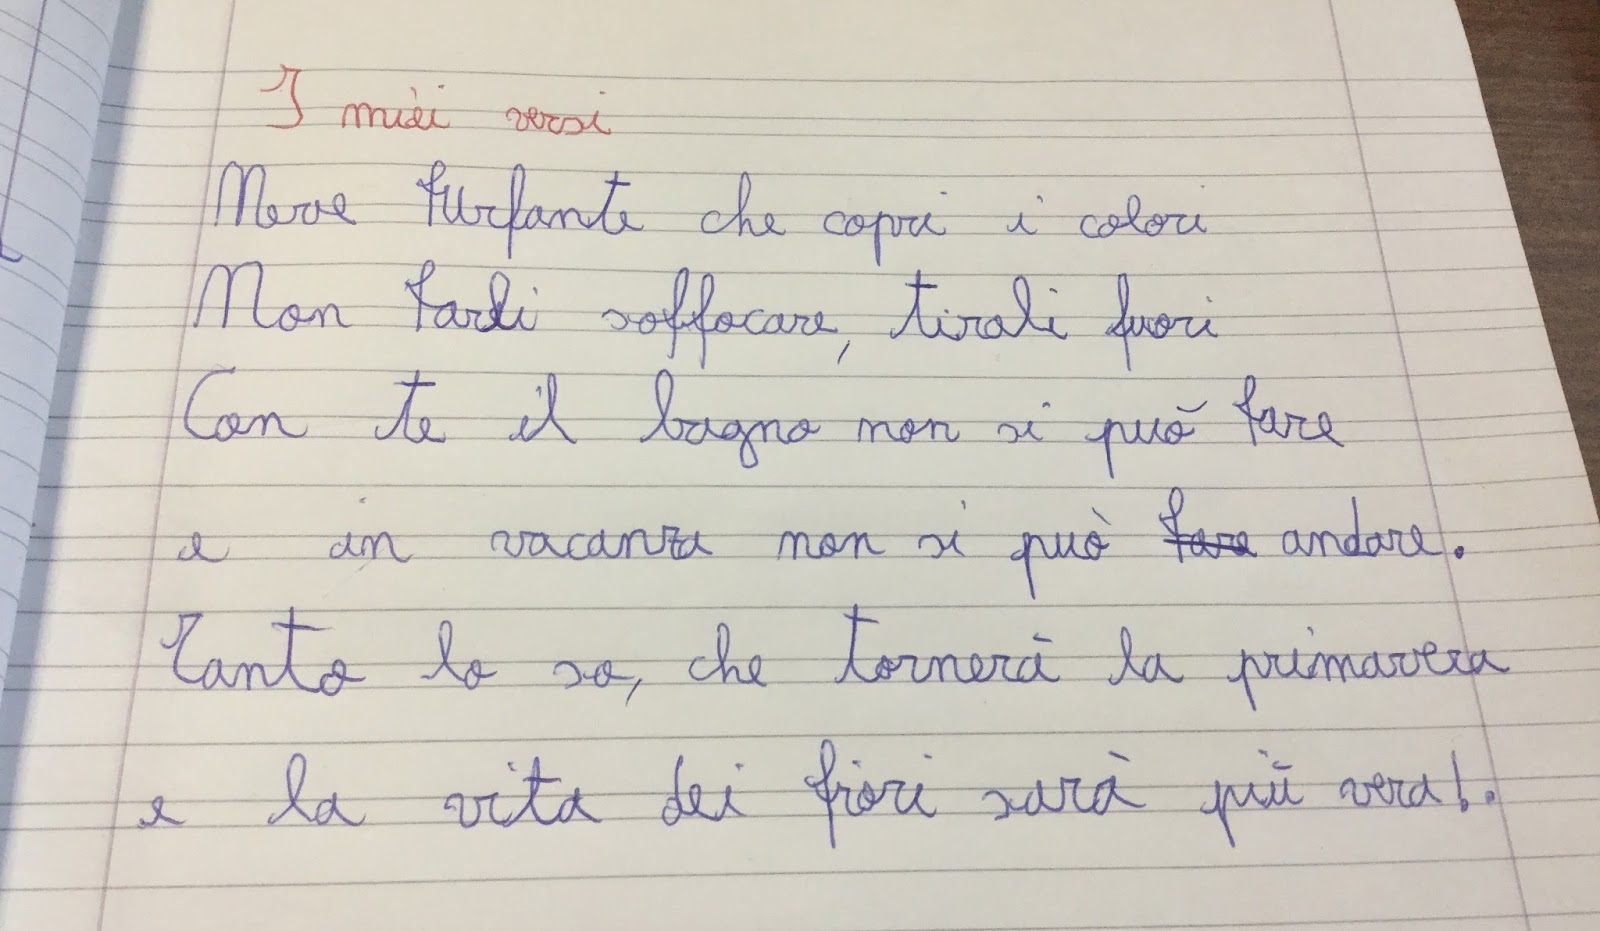 I miei versi
Neve furfante che copri i colori
Non farli soffocare, tirali fuori
Con te il bagno non si può fare
e in vacanza non si può fare andare.
Tanto lo so, che tornerà la primavera
e la vita dei fiori sarà più vera!.